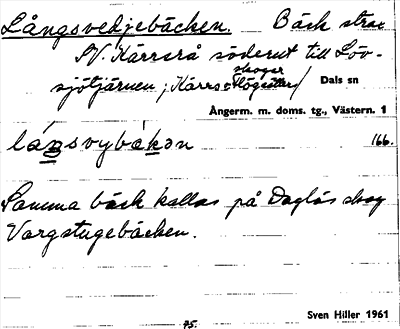 Långsvedjebäcken. Bäck strax
SV. Kärrsrå söderut till Löv-
sjötjärnen; Kärrs o Högsätter skogar / Dals sn
Ångerm. m. doms. tg., Västern. 1
lánsvybàkən 166.
Samma bäck kallas på Daglös skog
Vargstugebäcken.
Sven Hiller 1961
75.